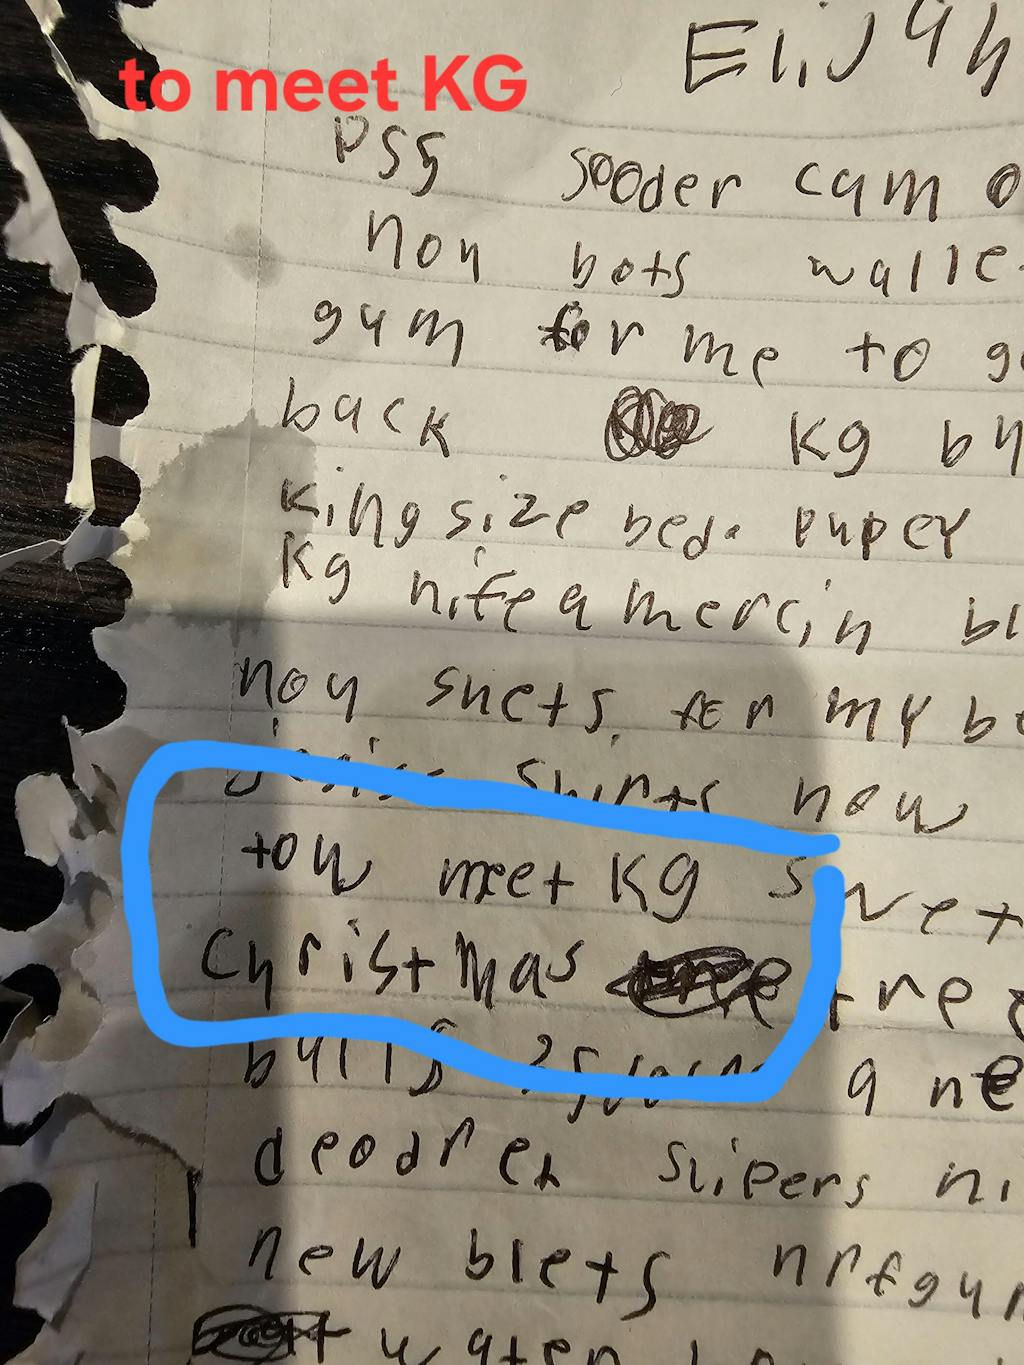 Elijah
to meet KG
PS5 sooder cam o
nou bots walle
gum for me to g
back Kg by
King size bed. puper
Kg nife a mercin bl
nou shets for my be
shirts new
tow meet KG swet
Christmas tree
balls a ne
deodret slipers ni
new blets nrfgun